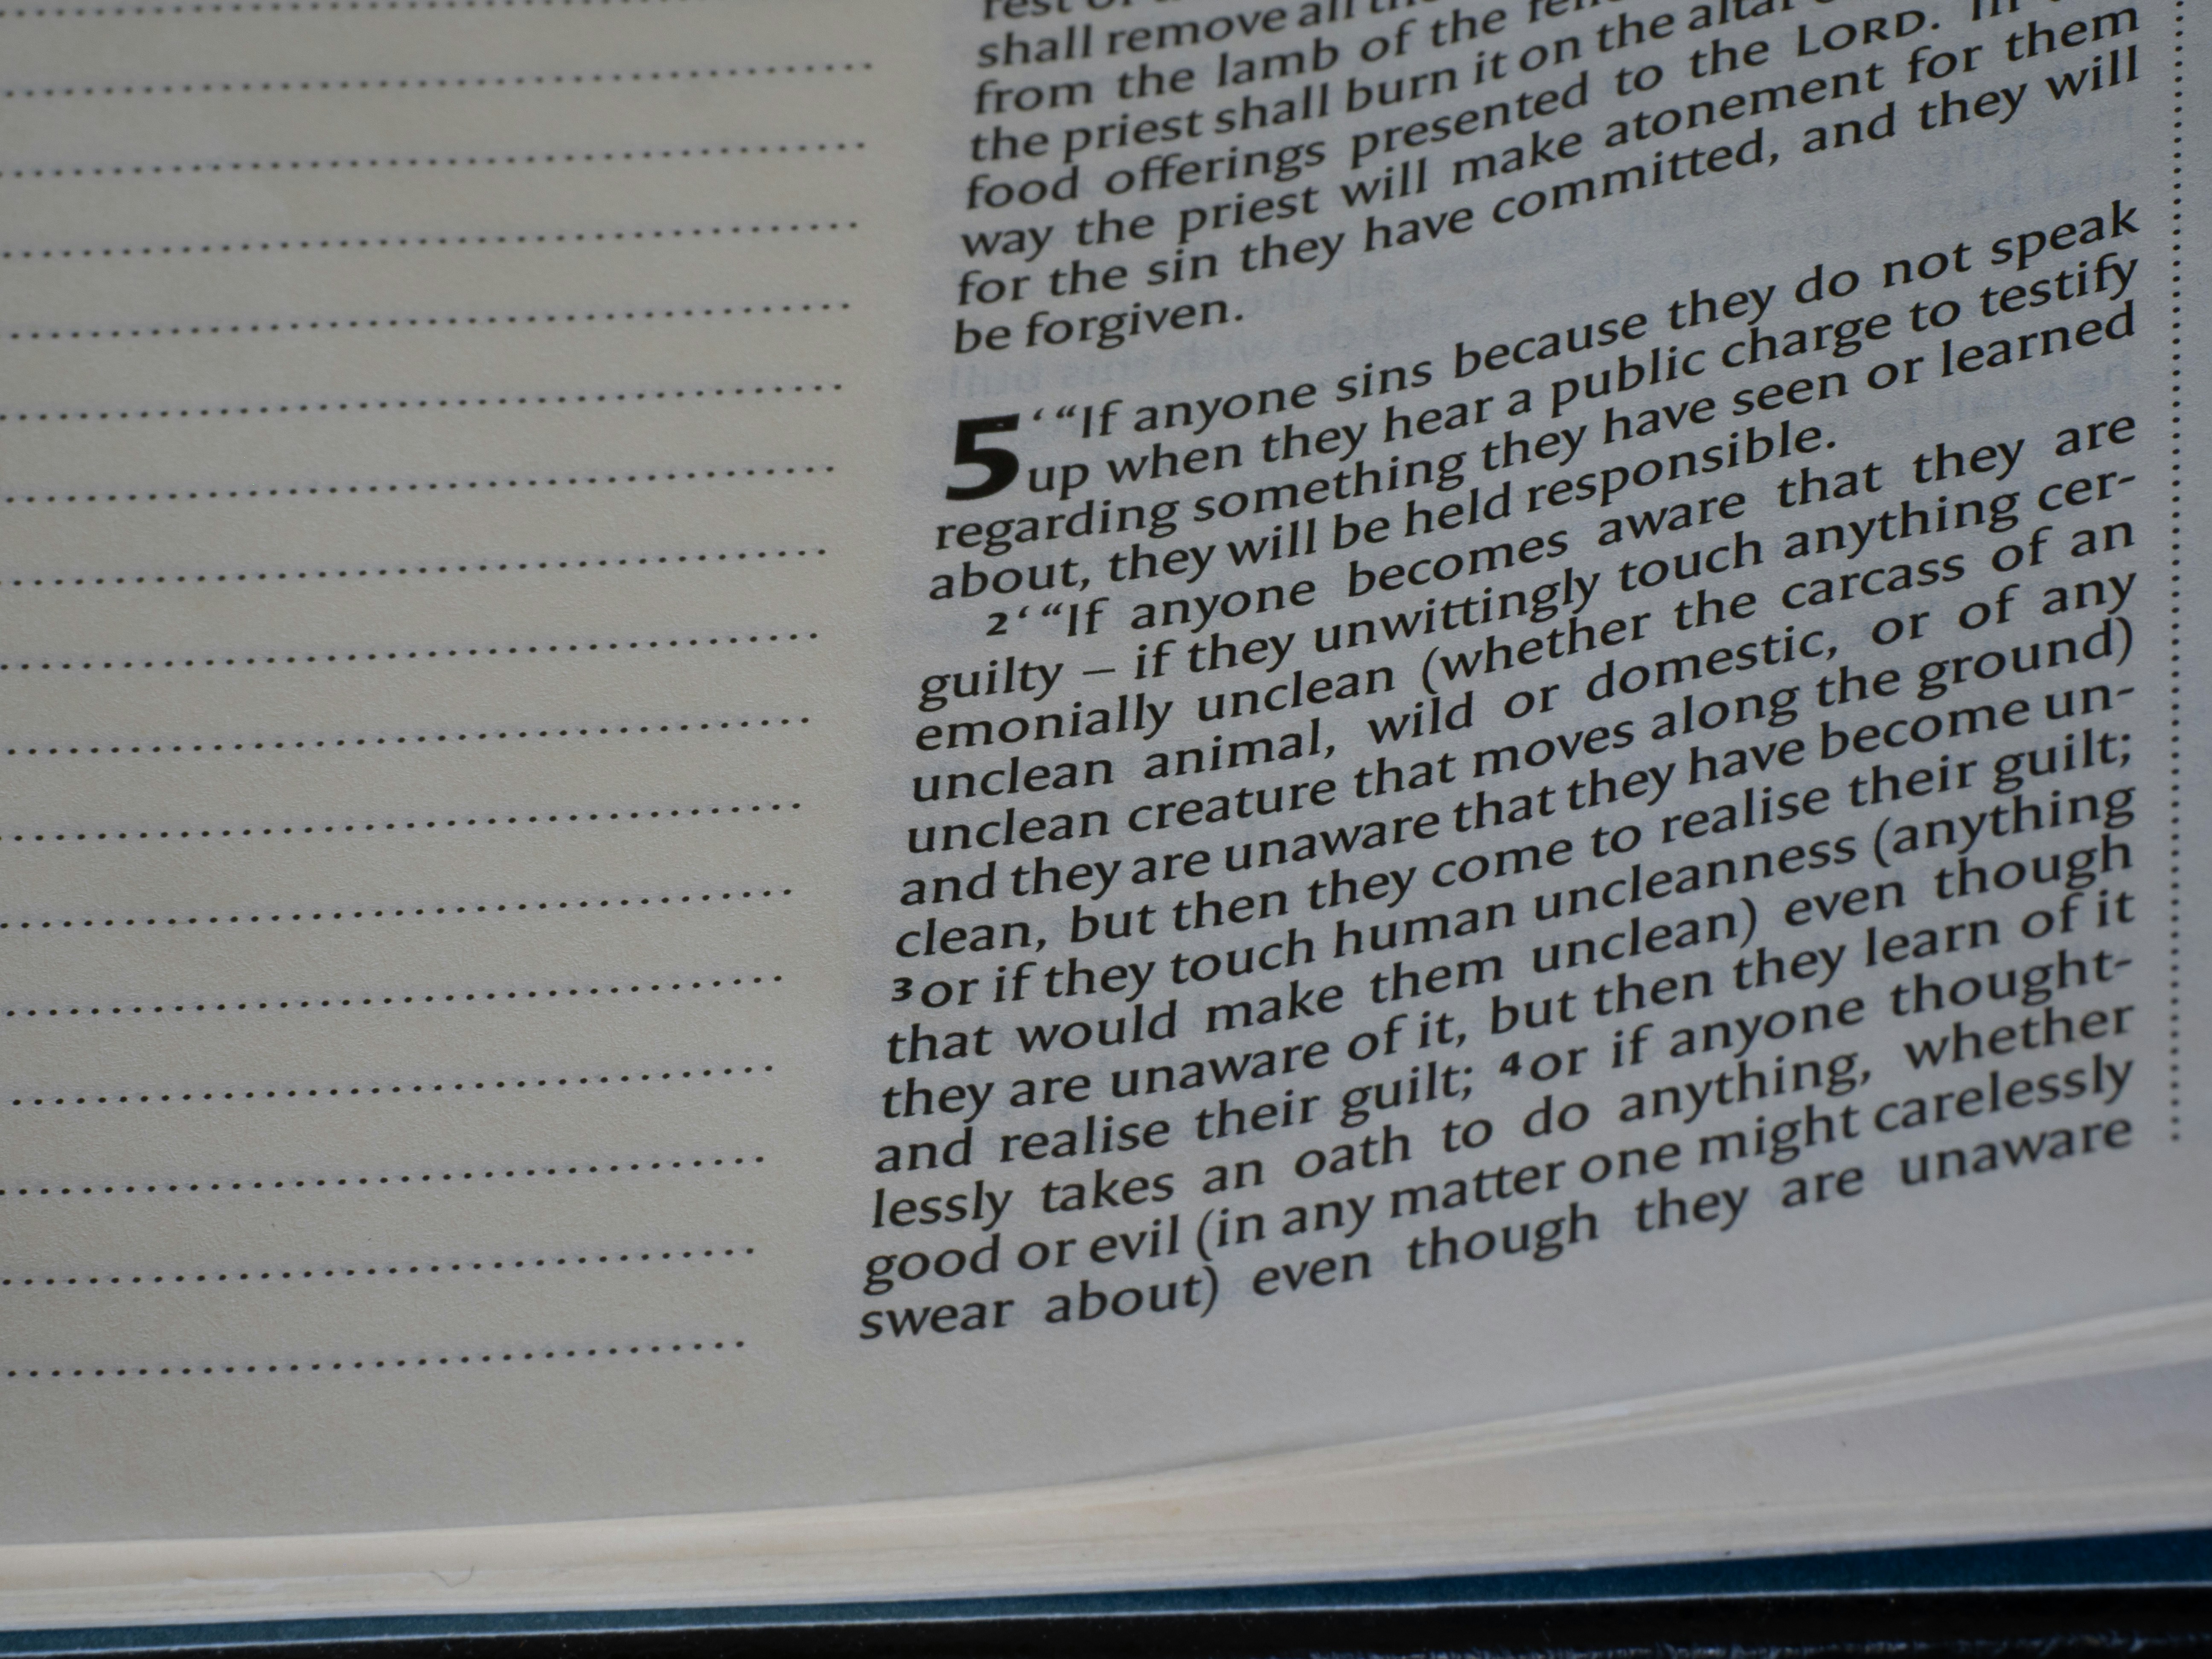 shall remove all
from the lamb of the
the priest shall burn it on the altar
food offerings presented to the LORD.
way the priest will make atonement for them
for the sin they have committed, and they will
be forgiven.
5 ‘“If anyone sins because they do not speak
up when they hear a public charge to testify
regarding something they have seen or learned
about, they will be held responsible.
2 ‘“If anyone becomes aware that they are
guilty – if they unwittingly touch anything cer-
emonially unclean (whether the carcass of an
unclean animal, wild or domestic, or of any
unclean creature that moves along the ground)
and they are unaware that they have become un-
clean, but then they come to realise their guilt;
3 or if they touch human uncleanness (anything
that would make them unclean) even though
they are unaware of it, but then they learn of it
and realise their guilt; 4 or if anyone thought-
lessly takes an oath to do anything, whether
good or evil (in any matter one might carelessly
swear about) even though they are unaware